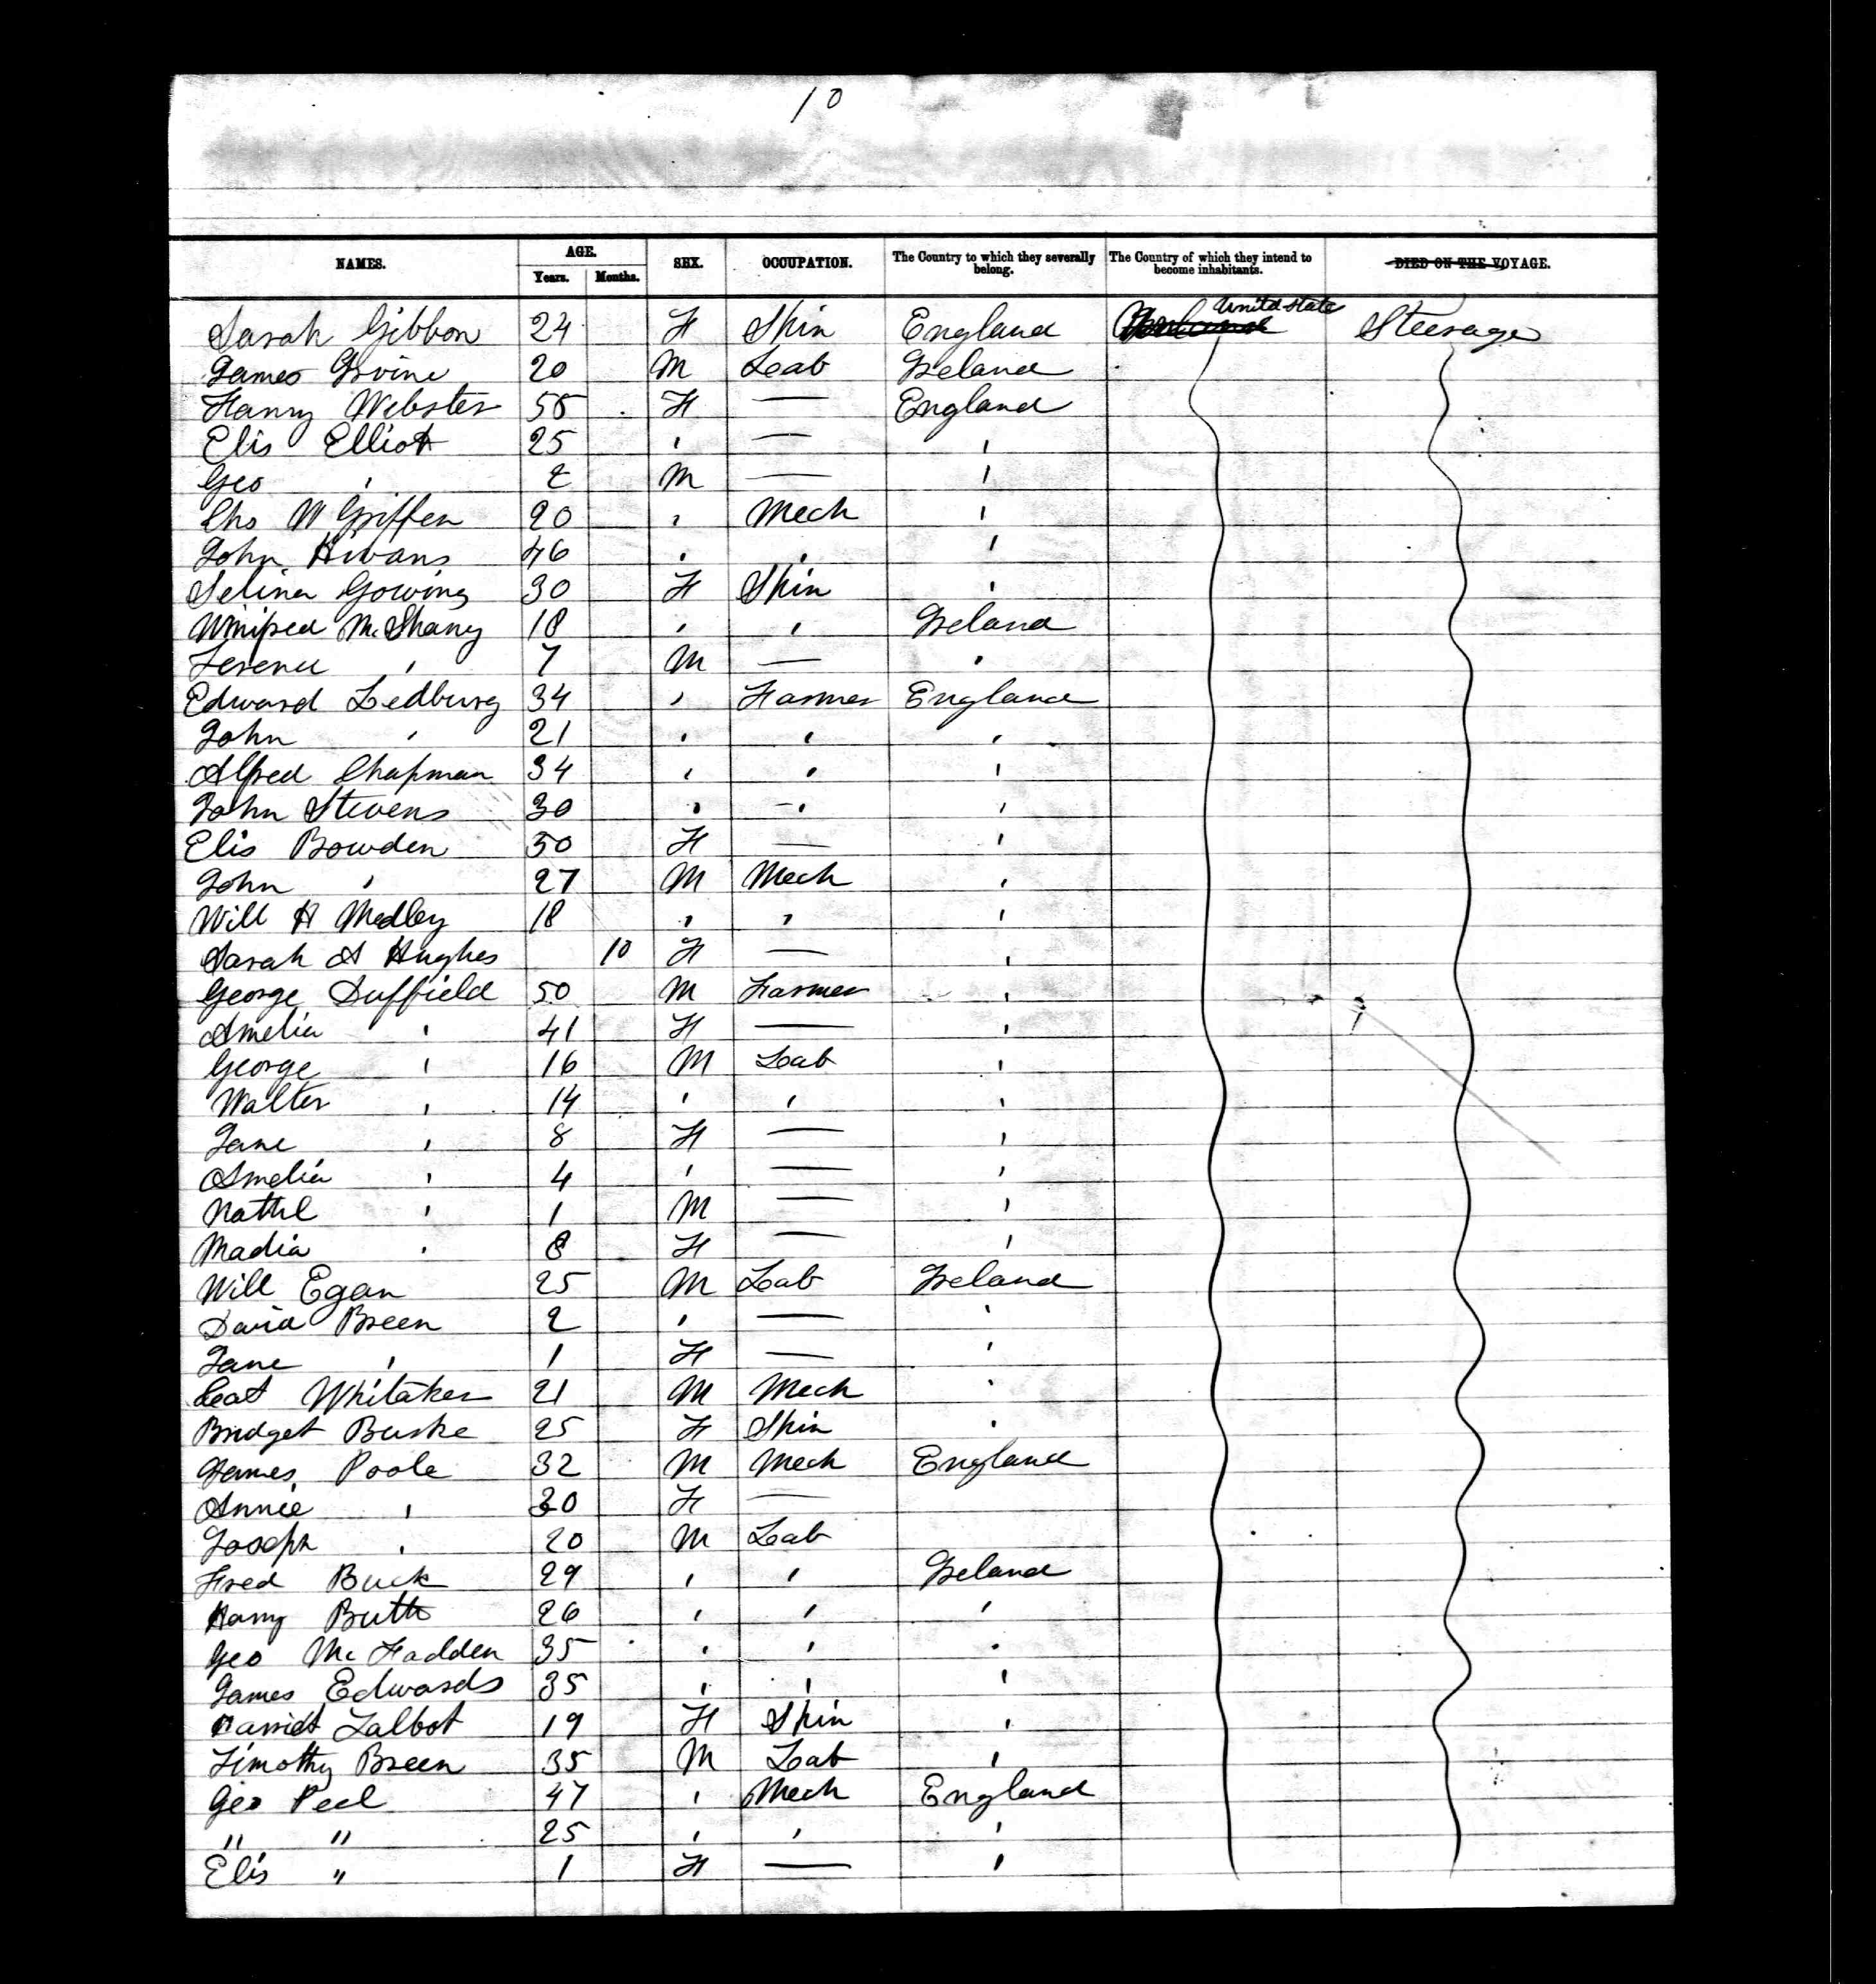 10
NAMES. AGE. Years. Months. SEX. OCCUPATION. The Country to which they severally belong. The Country of which they intend to become inhabitants. DIED ON THE VOYAGE.
Sarah Gibbon 24 F Spin England United State Steerage
James Irvine 20 M Lab Ireland
Fanny Webster 55 F — England
Elis Elliott 25 ' — '
Geo ' 2 M — '
Chs W Griffen 20 ' Mech '
John Hivans 46 ' ' '
Selina Gowing 30 F Spin '
Winifred McShany 18 ' ' Ireland
Terence ' 7 M — '
Edward Ledburg 34 ' Farmer England
John ' 21 ' ' '
Alfred Chapman 34 ' ' '
John Stevens 30 ' ' '
Elis Bowden 50 F — '
John ' 27 M Mech '
Will H Medley 18 ' ' '
Sarah A Hughes 10 F — '
George Duffield 50 M Farmer '
Amelia ' 41 F — '
George ' 16 M Lab '
Walter ' 14 ' ' '
Jane ' 8 F — '
Amelia ' 4 ' — '
Nathl ' 1 M — '
Madia ' F — '
Will Egan 25 M Lab Ireland
David Breen 2 ' — '
Jane ' 1 F — '
Whitaker 21 M Mech '
Bridget Burke 25 F Spin '
James Poole 32 M Mech England
Annie ' 30 F —
Joseph ' 20 M Lab
Fred Buck 29 ' ' Ireland
Harry Butt 26 ' ' '
Geo McFadden 35 ' ' '
James Edwards 35 ' ' '
Harriet Talbot 19 F Spin '
Timothy Breen 35 M Lab '
Geo Peel 47 ' Mech England
" " 25 ' ' '
Elis " 1 F — '